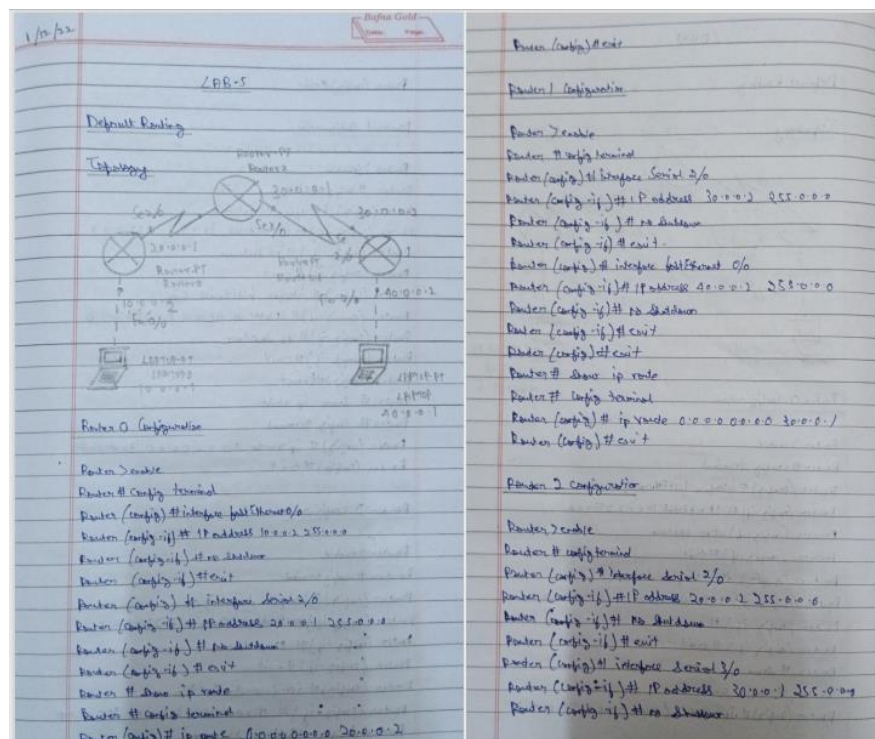 1/12/22
Bafna Gold
Date: Page:
LAB-5
Default Routing
Topology
Router-PT
Router2
30.0.0.1
Se2/0
Se3/0
30.0.0.2
Se
2/0
20.0.0.1
Router-PT
Router-PT
10.0.0.2
Fa0/0
Fa0/0
40.0.0.2
LAPTOP-PT
10.0.0.1
LAPTOP-PT
LAPTOP
40.0.0.1
Router 0 Configuration
Router > enable
Router # config terminal
Router (config) # interface fastEthernet 0/0
Router (config-if) # IP address 10.0.0.2 255.0.0.0
Router (config-if) # no shutdown
Router (config-if) # exit
Router (config) # interface Serial 2/0
Router (config-if) # IP address 20.0.0.1 255.0.0.0
Router (config-if) # no shutdown
Router (config-if) # exit
Router # show ip route
Router # config terminal
Router (config) # ip route 0.0.0.0 0.0.0.0 20.0.0.2
Router (config) # exit
Router 1 Configuration
Router > enable
Router # config terminal
Router (config) # interface Serial 2/0
Router (config-if) # IP address 30.0.0.2 255.0.0.0
Router (config-if) # no shutdown
Router (config-if) # exit.
Router (config) # interface fastEthernet 0/0
Router (config-if) # IP address 40.0.0.2 255.0.0.0
Router (config-if) # no shutdown
Router (config-if) # exit
Router (config) # exit
Router # show ip route
Router # config terminal
Router (config) # ip route 0.0.0.0 0.0.0.0 30.0.0.1
Router (config) # exit
Router 2 configuration
Router > enable
Router # config terminal
Router (config) # interface Serial 2/0
Router (config-if) # IP address 20.0.0.2 255.0.0.0
Router (config-if) # no shutdown
Router (config-if) # exit
Router (config) # interface Serial 3/0
Router (config-if) # IP address 30.0.0.1 255.0.0.0
Router (config-if) # no shutdown